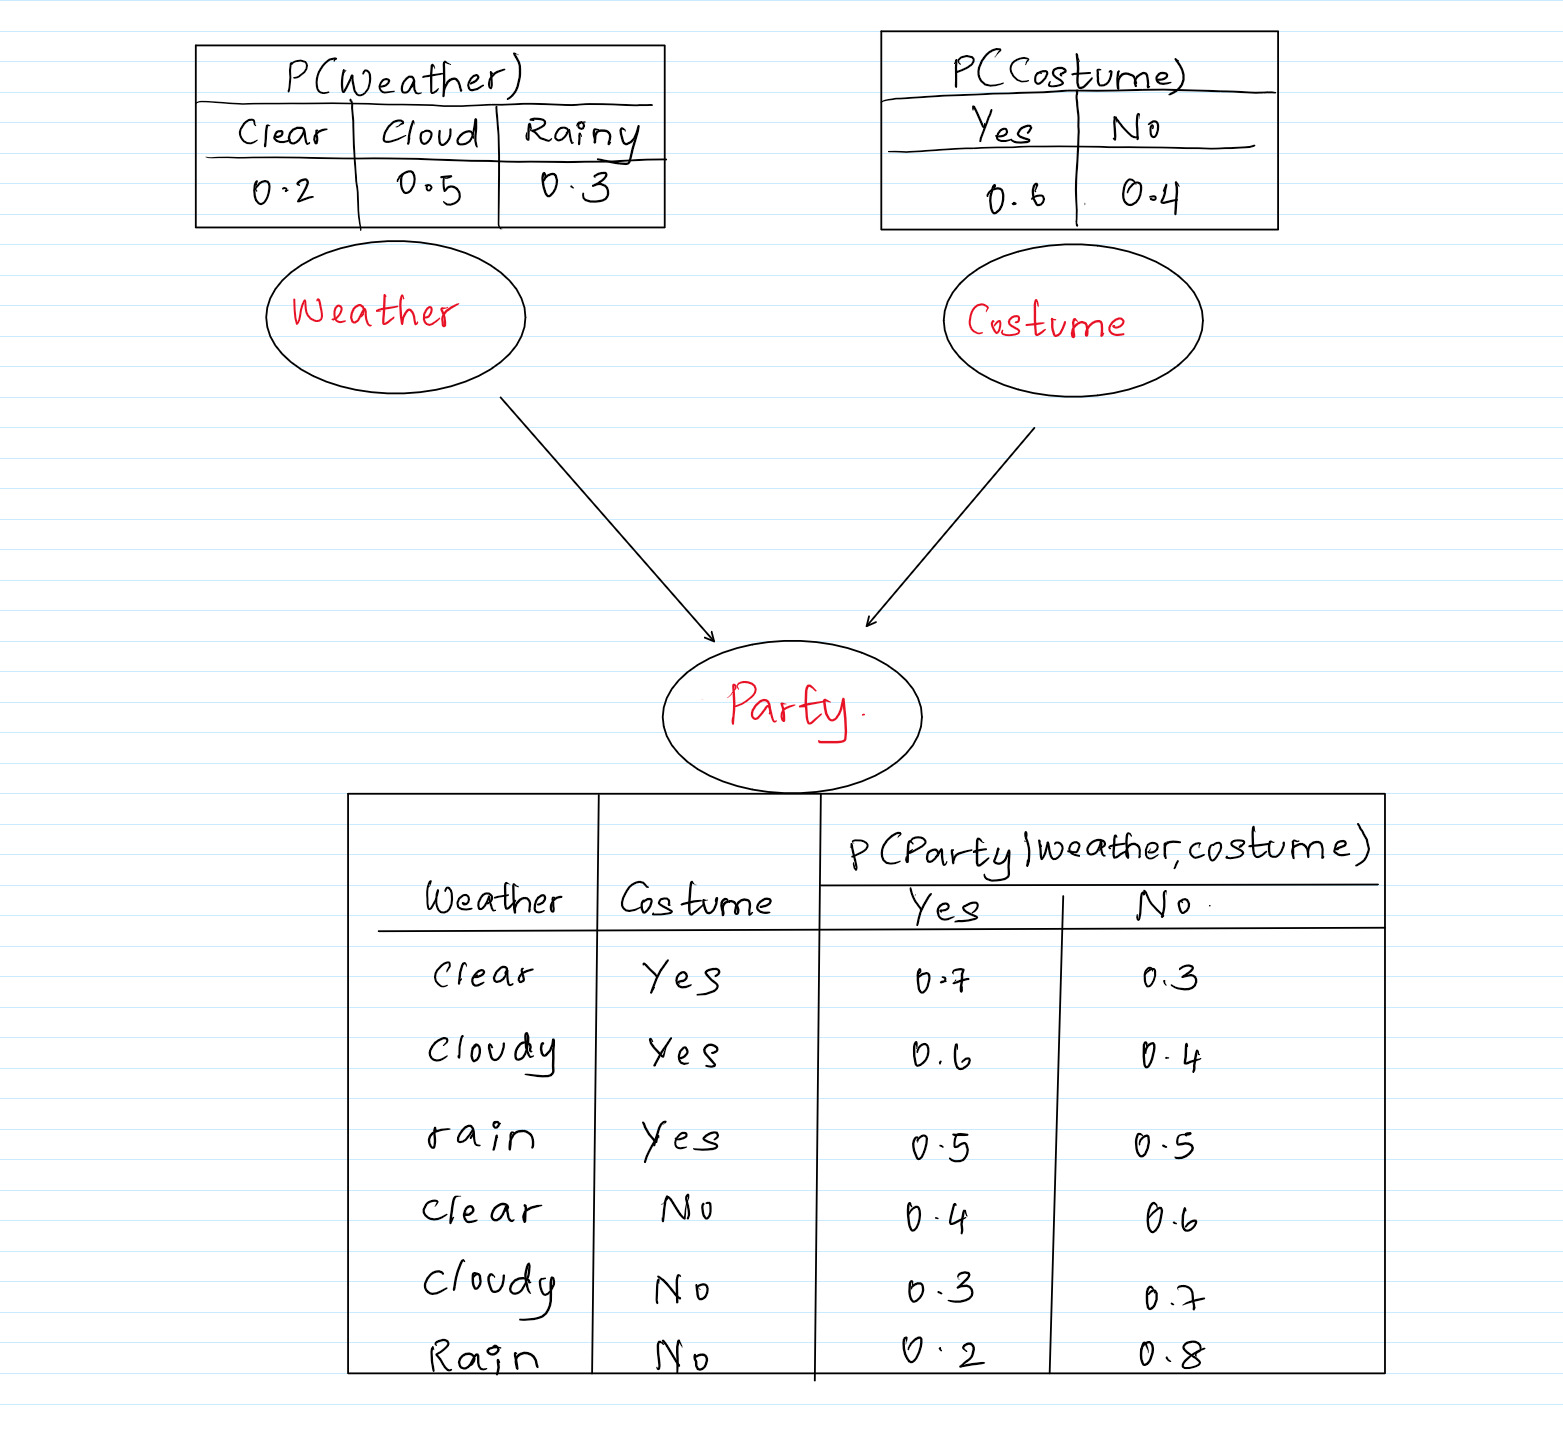 P(Weather)
Clear Cloud Rainy
0.2 0.5 0.3
P(Costume)
Yes No
0.6 0.4
Weather
Costume
Party.
P(Party|weather,costume)
Weather Costume Yes No
Clear Yes 0.7 0.3
Cloudy Yes 0.6 0.4
rain Yes 0.5 0.5
Clear No 0.4 0.6
Cloudy No 0.3 0.7
Rain No 0.2 0.8